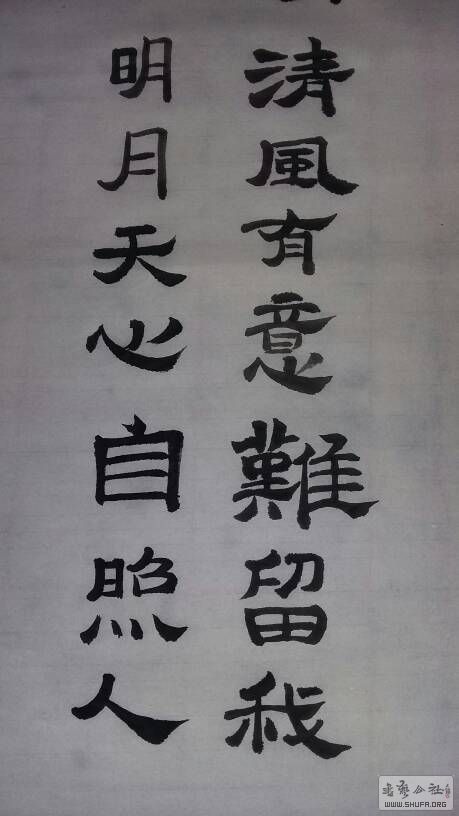 清風有意難留我
明月天心自照人
書藝公社
WWW.SHUFA.ORG